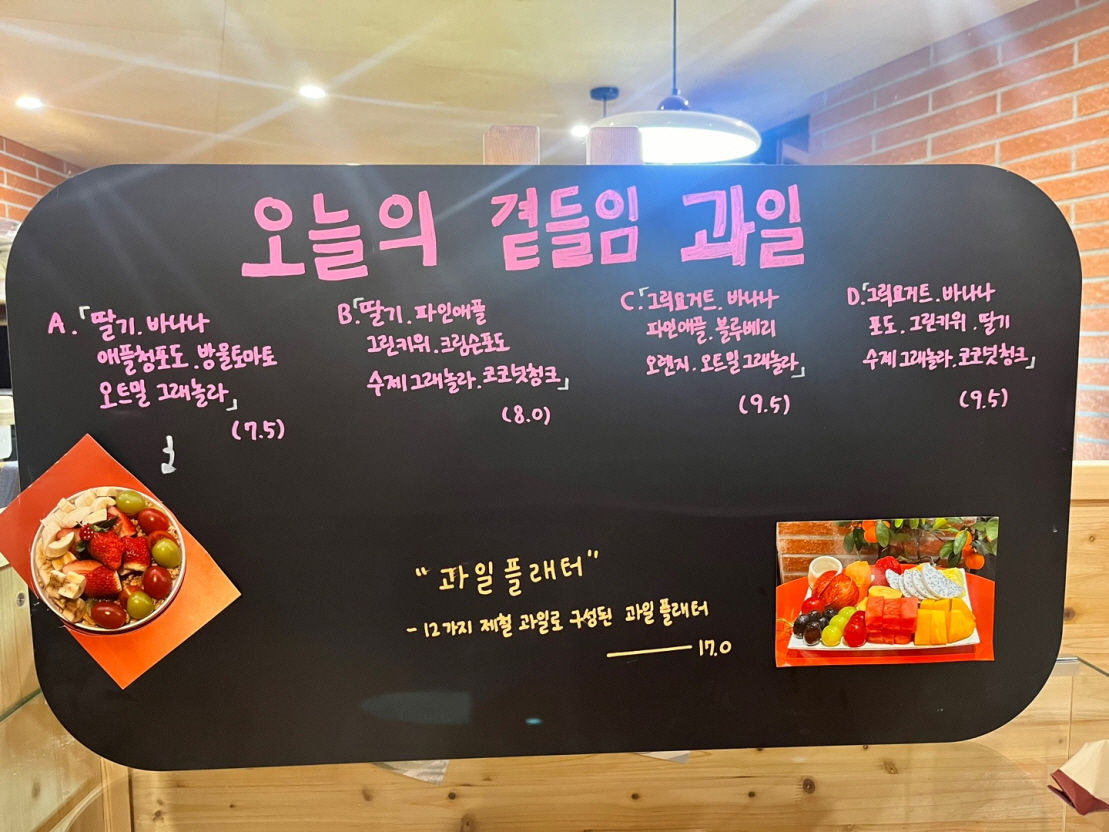 오늘의 곁들임 과일
A.「딸기.바나나
애플청포도.방울토마토
오트밀 그래놀라」
(7.5)
B.「딸기.파인애플
그린키위.크림슨포도
수제그래놀라.코코넛청크」
(8.0)
C.「그릭요거트.바나나
파인애플.블루베리
오렌지.오트밀그래놀라」
(9.5)
D.「그릭요거트.바나나
포도.그린키위.딸기
수제그래놀라.코코넛청크」
(9.5)
"과일플래터"
- 12가지 제철 과일로 구성된 과일 플래터
17.0